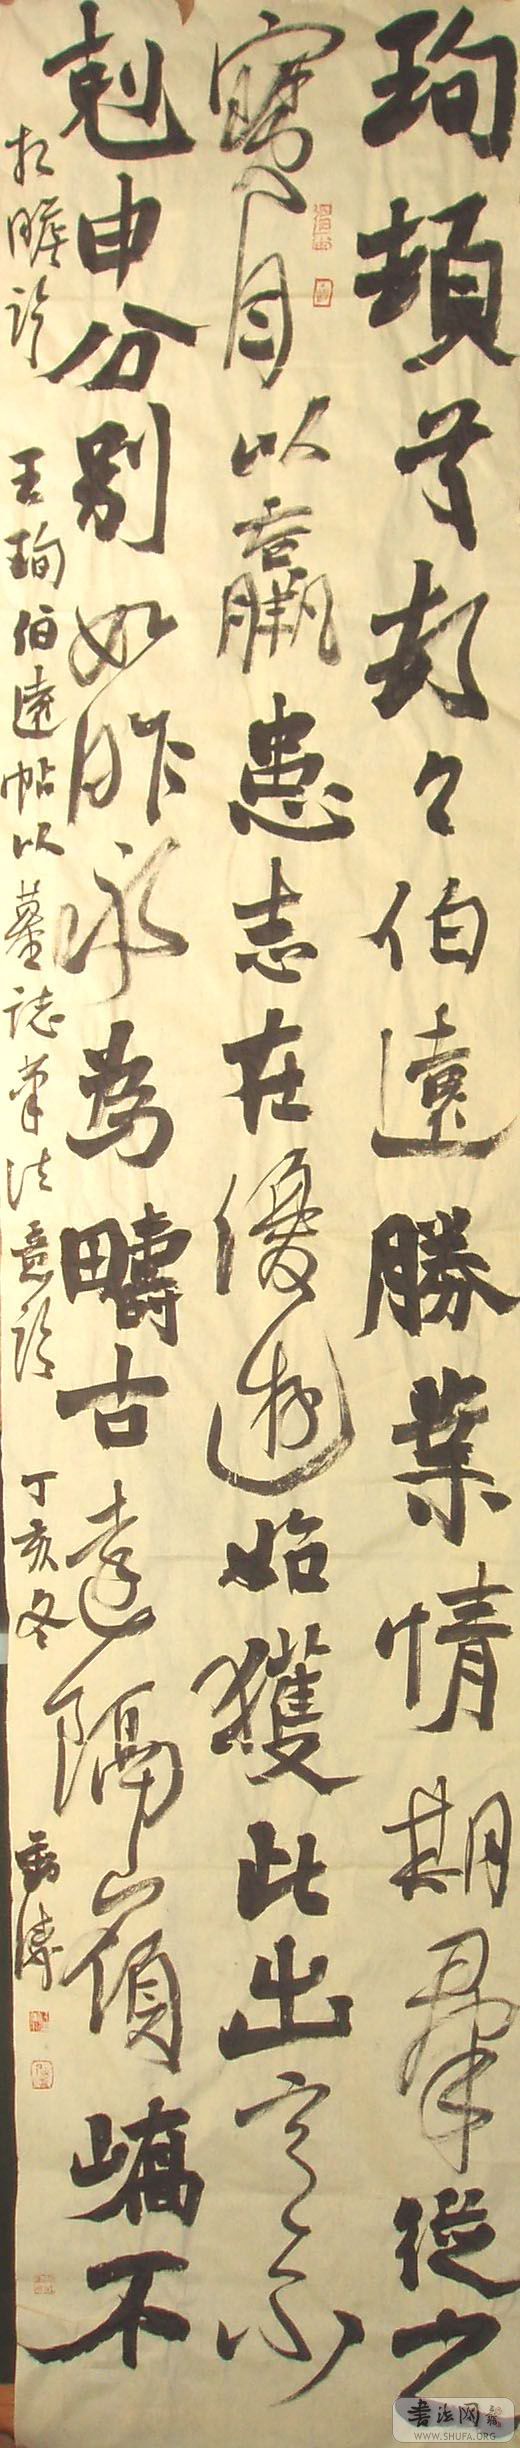 珣頓首頓々伯遠勝業情期群從之
寶自以羸患志在優遊始獲此出意不
剋申分別如昨永為疇古遠隔嶺嶠不
相瞻臨 王珣伯遠帖以墓誌筆法意臨 丁亥冬
書法网
WWW.SHUFA.ORG